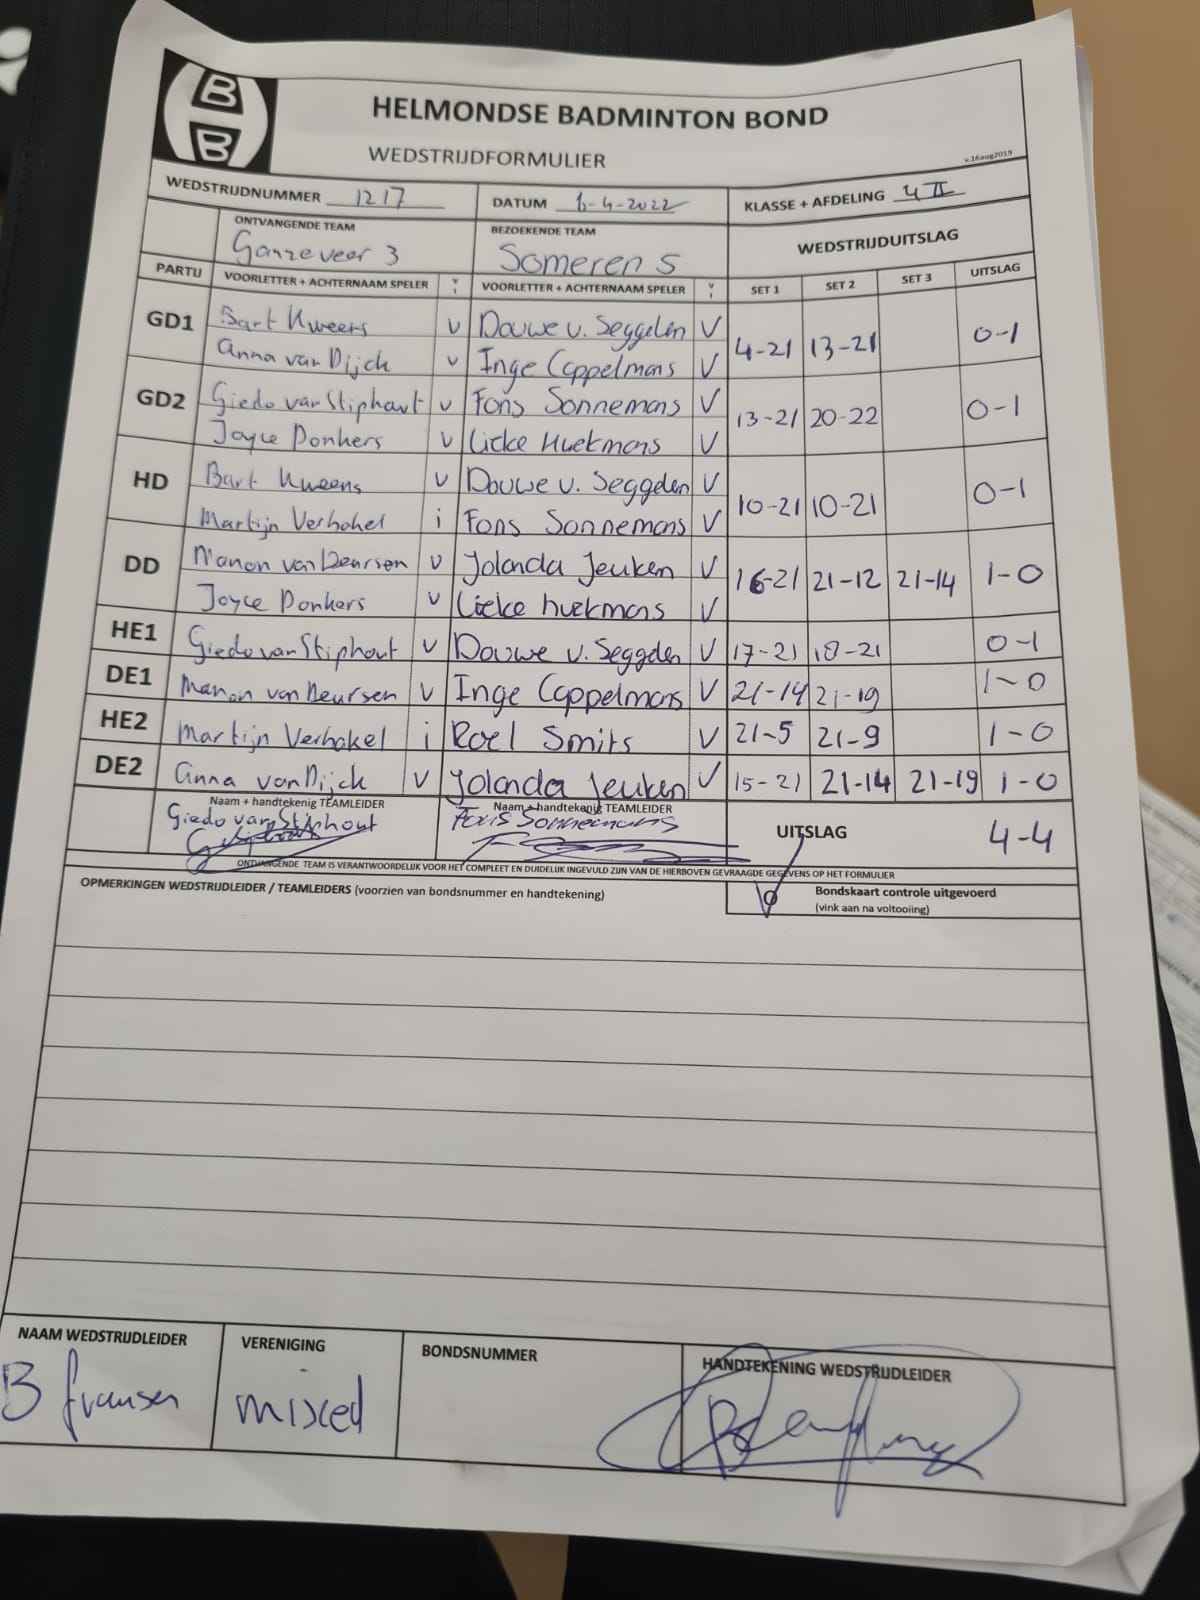 B
B
HELMONDSE BADMINTON BOND
WEDSTRIJDFORMULIER
v.16aug2019
WEDSTRIJDNUMMER 1217 DATUM 6-4-2022 KLASSE + AFDELING 4 II
ONTVANGENDE TEAM BEZOEKENDE TEAM WEDSTRIJDUITSLAG
Ganzeveer 3 Someren 5
PARTIJ VOORLETTER + ACHTERNAAM SPELER V I VOORLETTER + ACHTERNAAM SPELER V I SET 1 SET 2 SET 3 UITSLAG
GD1 Bart Kweens v Douwe v. Seggelen V 4-21 13-21 0-1
Anna van Dijck v Inge Coppelmans V
GD2 Giedo van Stiphout v Fons Sonnemans V 13-21 20-22 0-1
Joyce Donkers v Lieke Huekmans V
HD Bart Kweens v Douwe v. Seggelen V 10-21 10-21 0-1
Martijn Verhakel i Fons Sonnemans V
DD Manon van Deursen v Jolanda Jeuken V 16-21 21-12 21-14 1-0
Joyce Donkers v Lieke huekmans V
HE1 Giedo van Stiphout v Douwe v. Seggelen V 17-21 18-21 0-1
DE1 Manon van Deursen v Inge Coppelmans V 21-14 21-19 1-0
HE2 Martijn Verhakel i Roel Smits V 21-5 21-9 1-0
DE2 anna van Dijck V Jolanda Jeuken V 15-21 21-14 21-19 1-0
Naam + handtekenig TEAMLEIDER Naam + handtekenig TEAMLEIDER
Giedo van Stiphout Fons Sonnemans UITSLAG 4-4
ONTVANGENDE TEAM IS VERANTWOORDELIJK VOOR HET COMPLEET EN DUIDELIJK INGEVULD ZIJN VAN DE HIERBOVEN GEVRAAGDE GEGEVENS OP HET FORMULIER
OPMERKINGEN WEDSTRIJDLEIDER / TEAMLEIDERS (voorzien van bondsnummer en handtekening) Bondskaart controle uitgevoerd
(vink aan na voltooiing)
NAAM WEDSTRIJDLEIDER VERENIGING BONDSNUMMER HANDTEKENING WEDSTRIJDLEIDER
B fransen mixed